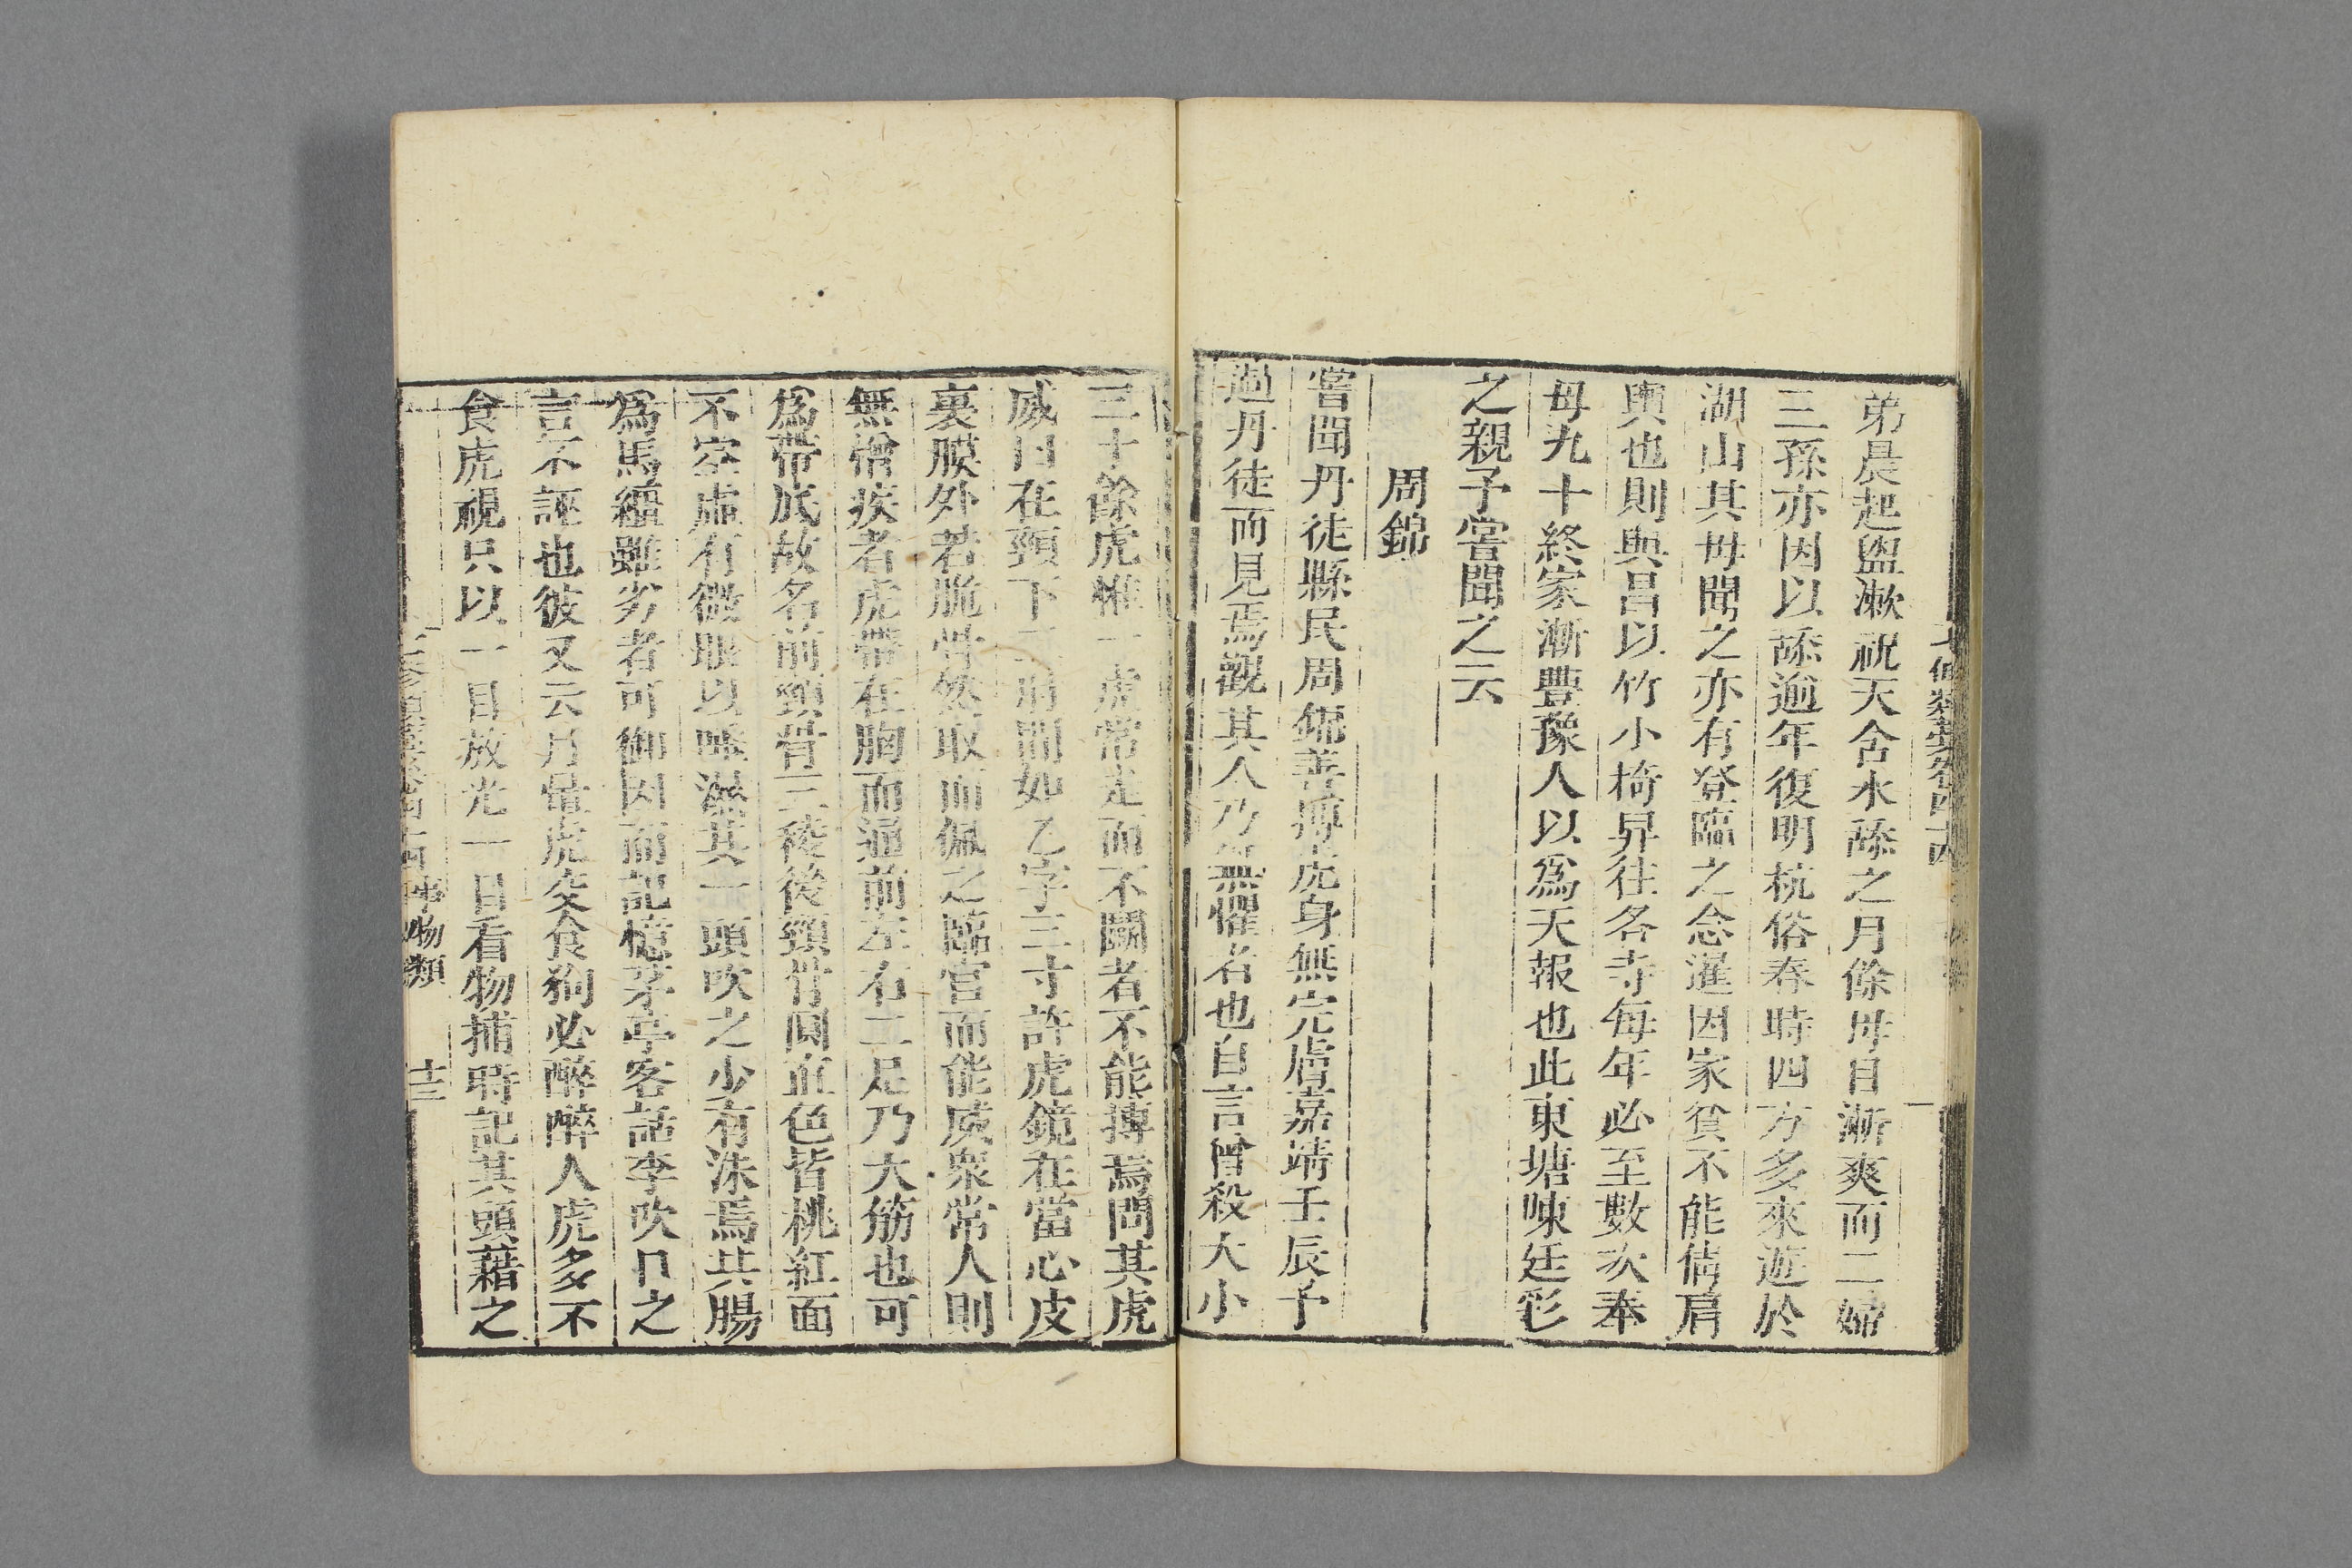 弟晨起盥漱祝天含水舔之月餘母目漸爽而二婦
三孫亦因以舔逾年復明杭俗春時四方多來遊於
湖山其母聞之亦有登臨之念暹因家貧不能倩肩
輿也則與昌以竹小椅舁往各寺每年必至數次奉
母九十終家漸豐豫人以爲天報也此東塘陳廷彩
之親予嘗聞之云
周錦
嘗聞丹徒縣民周錦善搏虎身無完膚嘉靖壬辰予
過丹徒而見焉觀其人乃無懼者也自言曾殺大小
三十餘虎惟一虎常走而不鬬者不能搏焉問其虎
威曰在頸下二肩間如乙字三寸許虎鏡在當心皮
裏膜外若脆骨然取而佩之臨官而能威衆常人則
無憎疾者虎帶在胸而連前左右二足乃大筋也可
爲帶底故名前頸骨三稜後頸骨圓直色皆桃紅面
不空虛有微眼以唾濕其一頭吹之少有沫焉其腸
爲馬纏雖劣者可御因而記憶茅亭客話李吹口之
言不誣也彼又云月暈虎交食狗必醉醉人虎多不
食虎視只以一目放光一目看物捕時記其頭藉之
事物類
十三